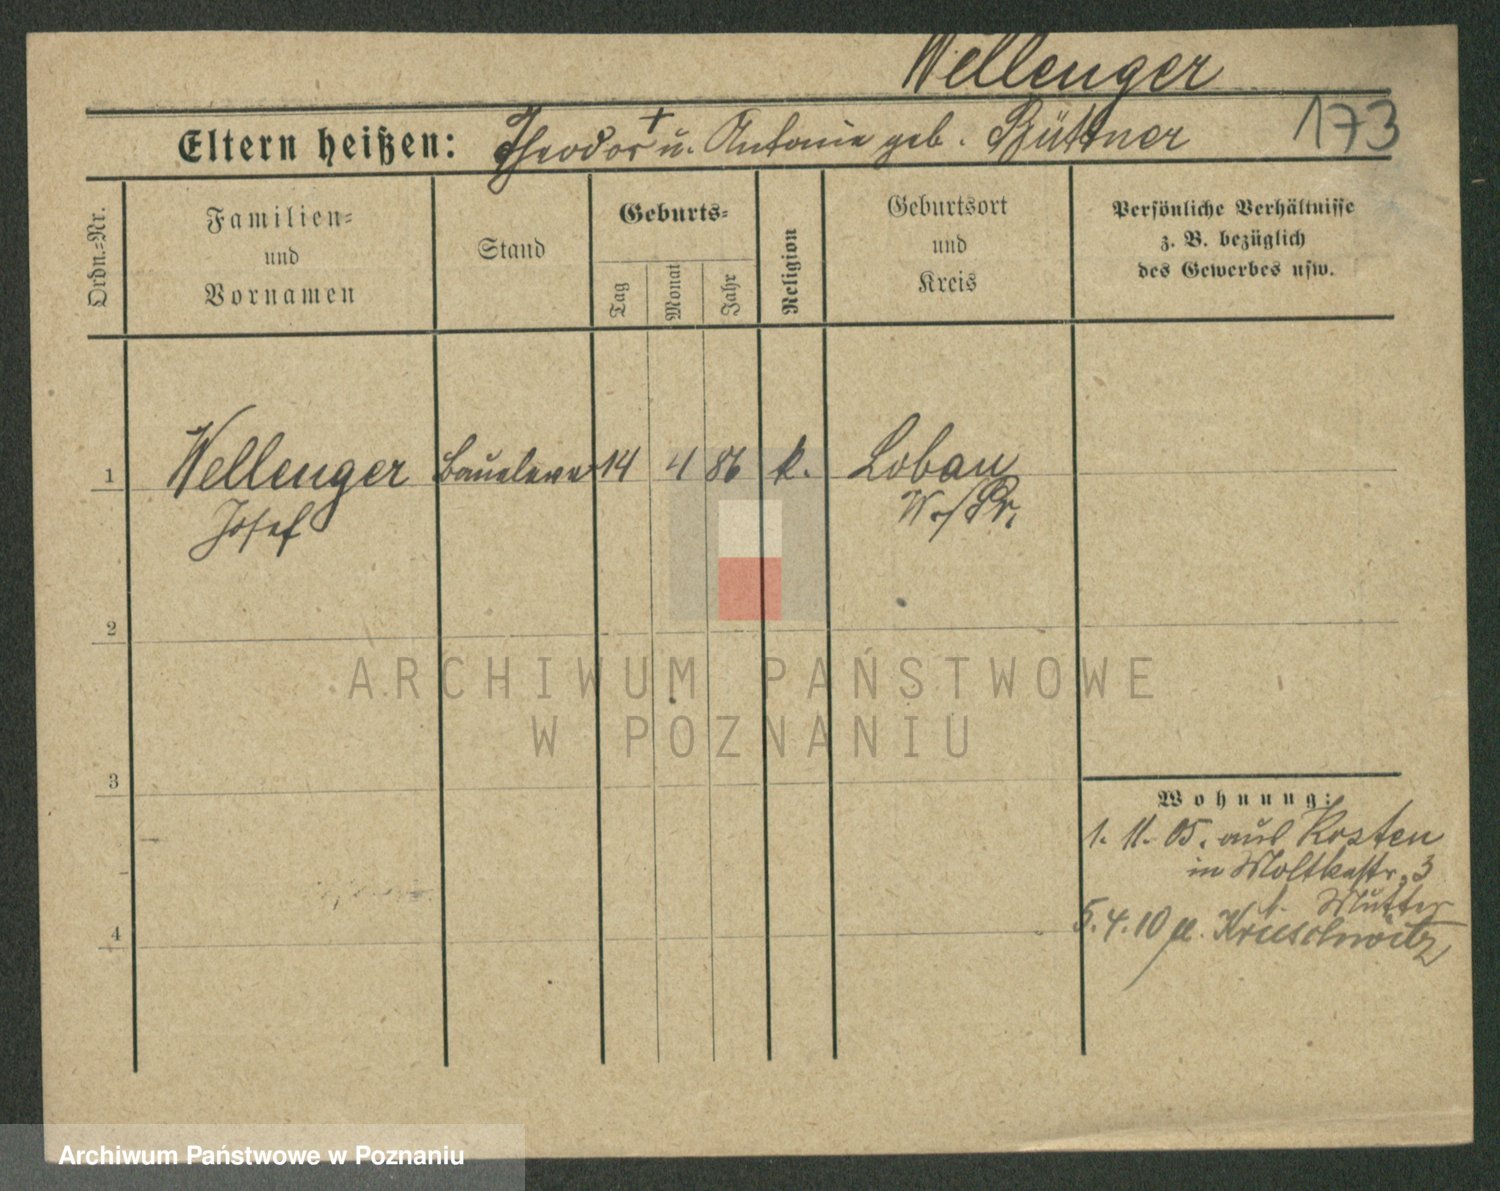 Wellenger
Eltern heißen: Theodor + u. Antonie geb. Büttner
173
Ordn.-Nr.
Familien-
und
Vornamen
Stand
Geburts-
Tag
Monat
Jahr
Religion
Geburtsort
und
Kreis
Persönliche Verhältnisse
z. B. bezüglich
des Gewerbes usw.
1
Wellenger
Josef
Baueleve
14
4
86
k.
Lobau
W./Pr.
2
3
4
ARCHIWUM PAŃSTWOWE
W POZNANIU
Wohnung:
1. 11. 05. aus Kosten
in Moltkestr. 3
b. Mutter
5. 4. 10 n.
Archiwum Państwowe w Poznaniu